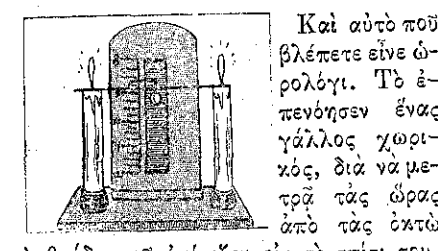 Καὶ αὐτὸ ποῦ
βλέπετε εἶνε ὡ-
ρολόγι. Τὸ ἐ-
πενόησεν ἕνας
γάλλος χωρι-
κός, διὰ νὰ με-
τρᾷ τὰς ὥρας
ἀπὸ τὰς ὀκτὼ